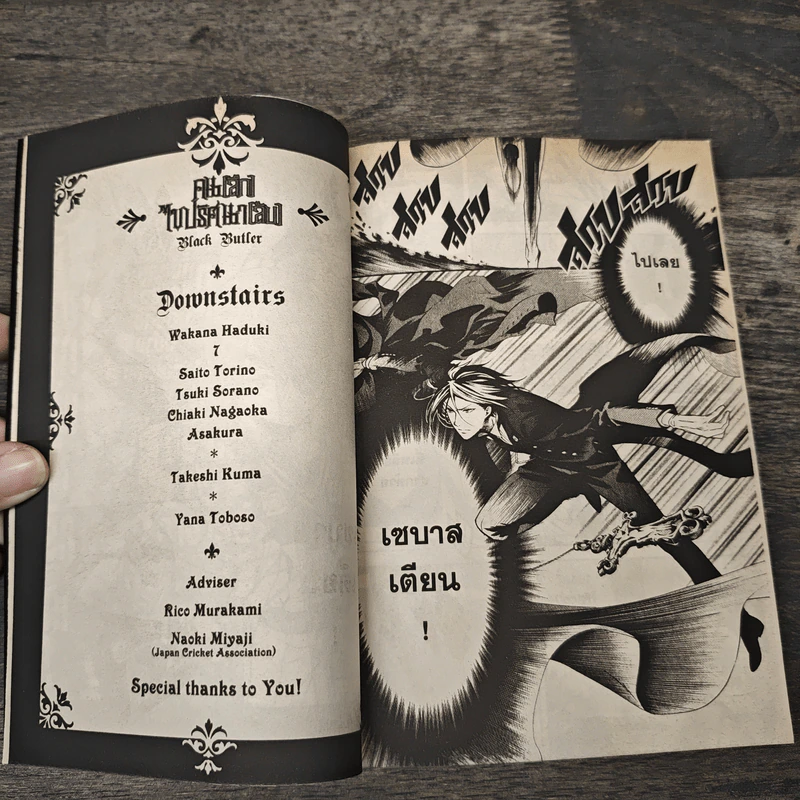 คนลึกไขปริศนาลับ
Black Butler
Downstairs
Wakana Haduki
7
Saito Torino
Tsuki Sorano
Chiaki Nagaoka
Asakura
*
Takeshi Kuma
*
Yana Toboso
Adviser
Rico Murakami
Naoki Miyaji
(Japan Cricket Association)
Special thanks to You!
สวบ
สวบ
สวบ
สวบ
สวบ
ไปเลย
!
เซบาส
เตียน
!